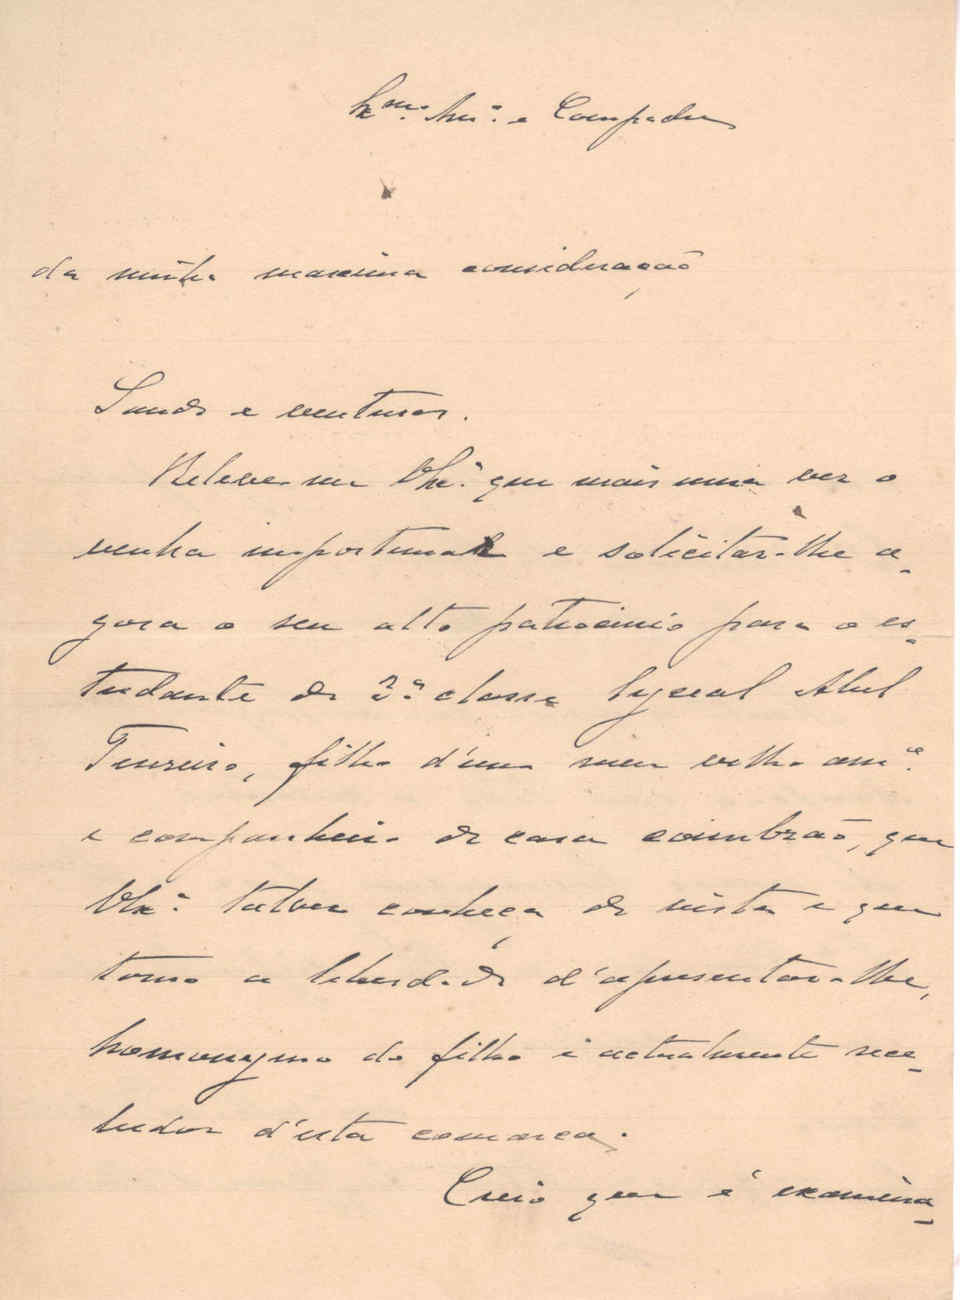 Exmo. Amo. e Compadre
da minha maxima consideração
Saude e venturas.
Releve-me VExa. que mais uma vez o
venha importunar e solicitar-lhe a-
gora o seu alto patrocinio para o es-
tudante da 2ª classe lyceal Abel
Teixeira, filho d'um meu velho amo.
e companheiro de casa coimbrão, que
VExa. talvez conheça de vista e que
tomo a liberdade d'apresentar-lhe,
homonymo do filho e actualmente rece-
bedor d'esta comarca.
Creio que é examina-